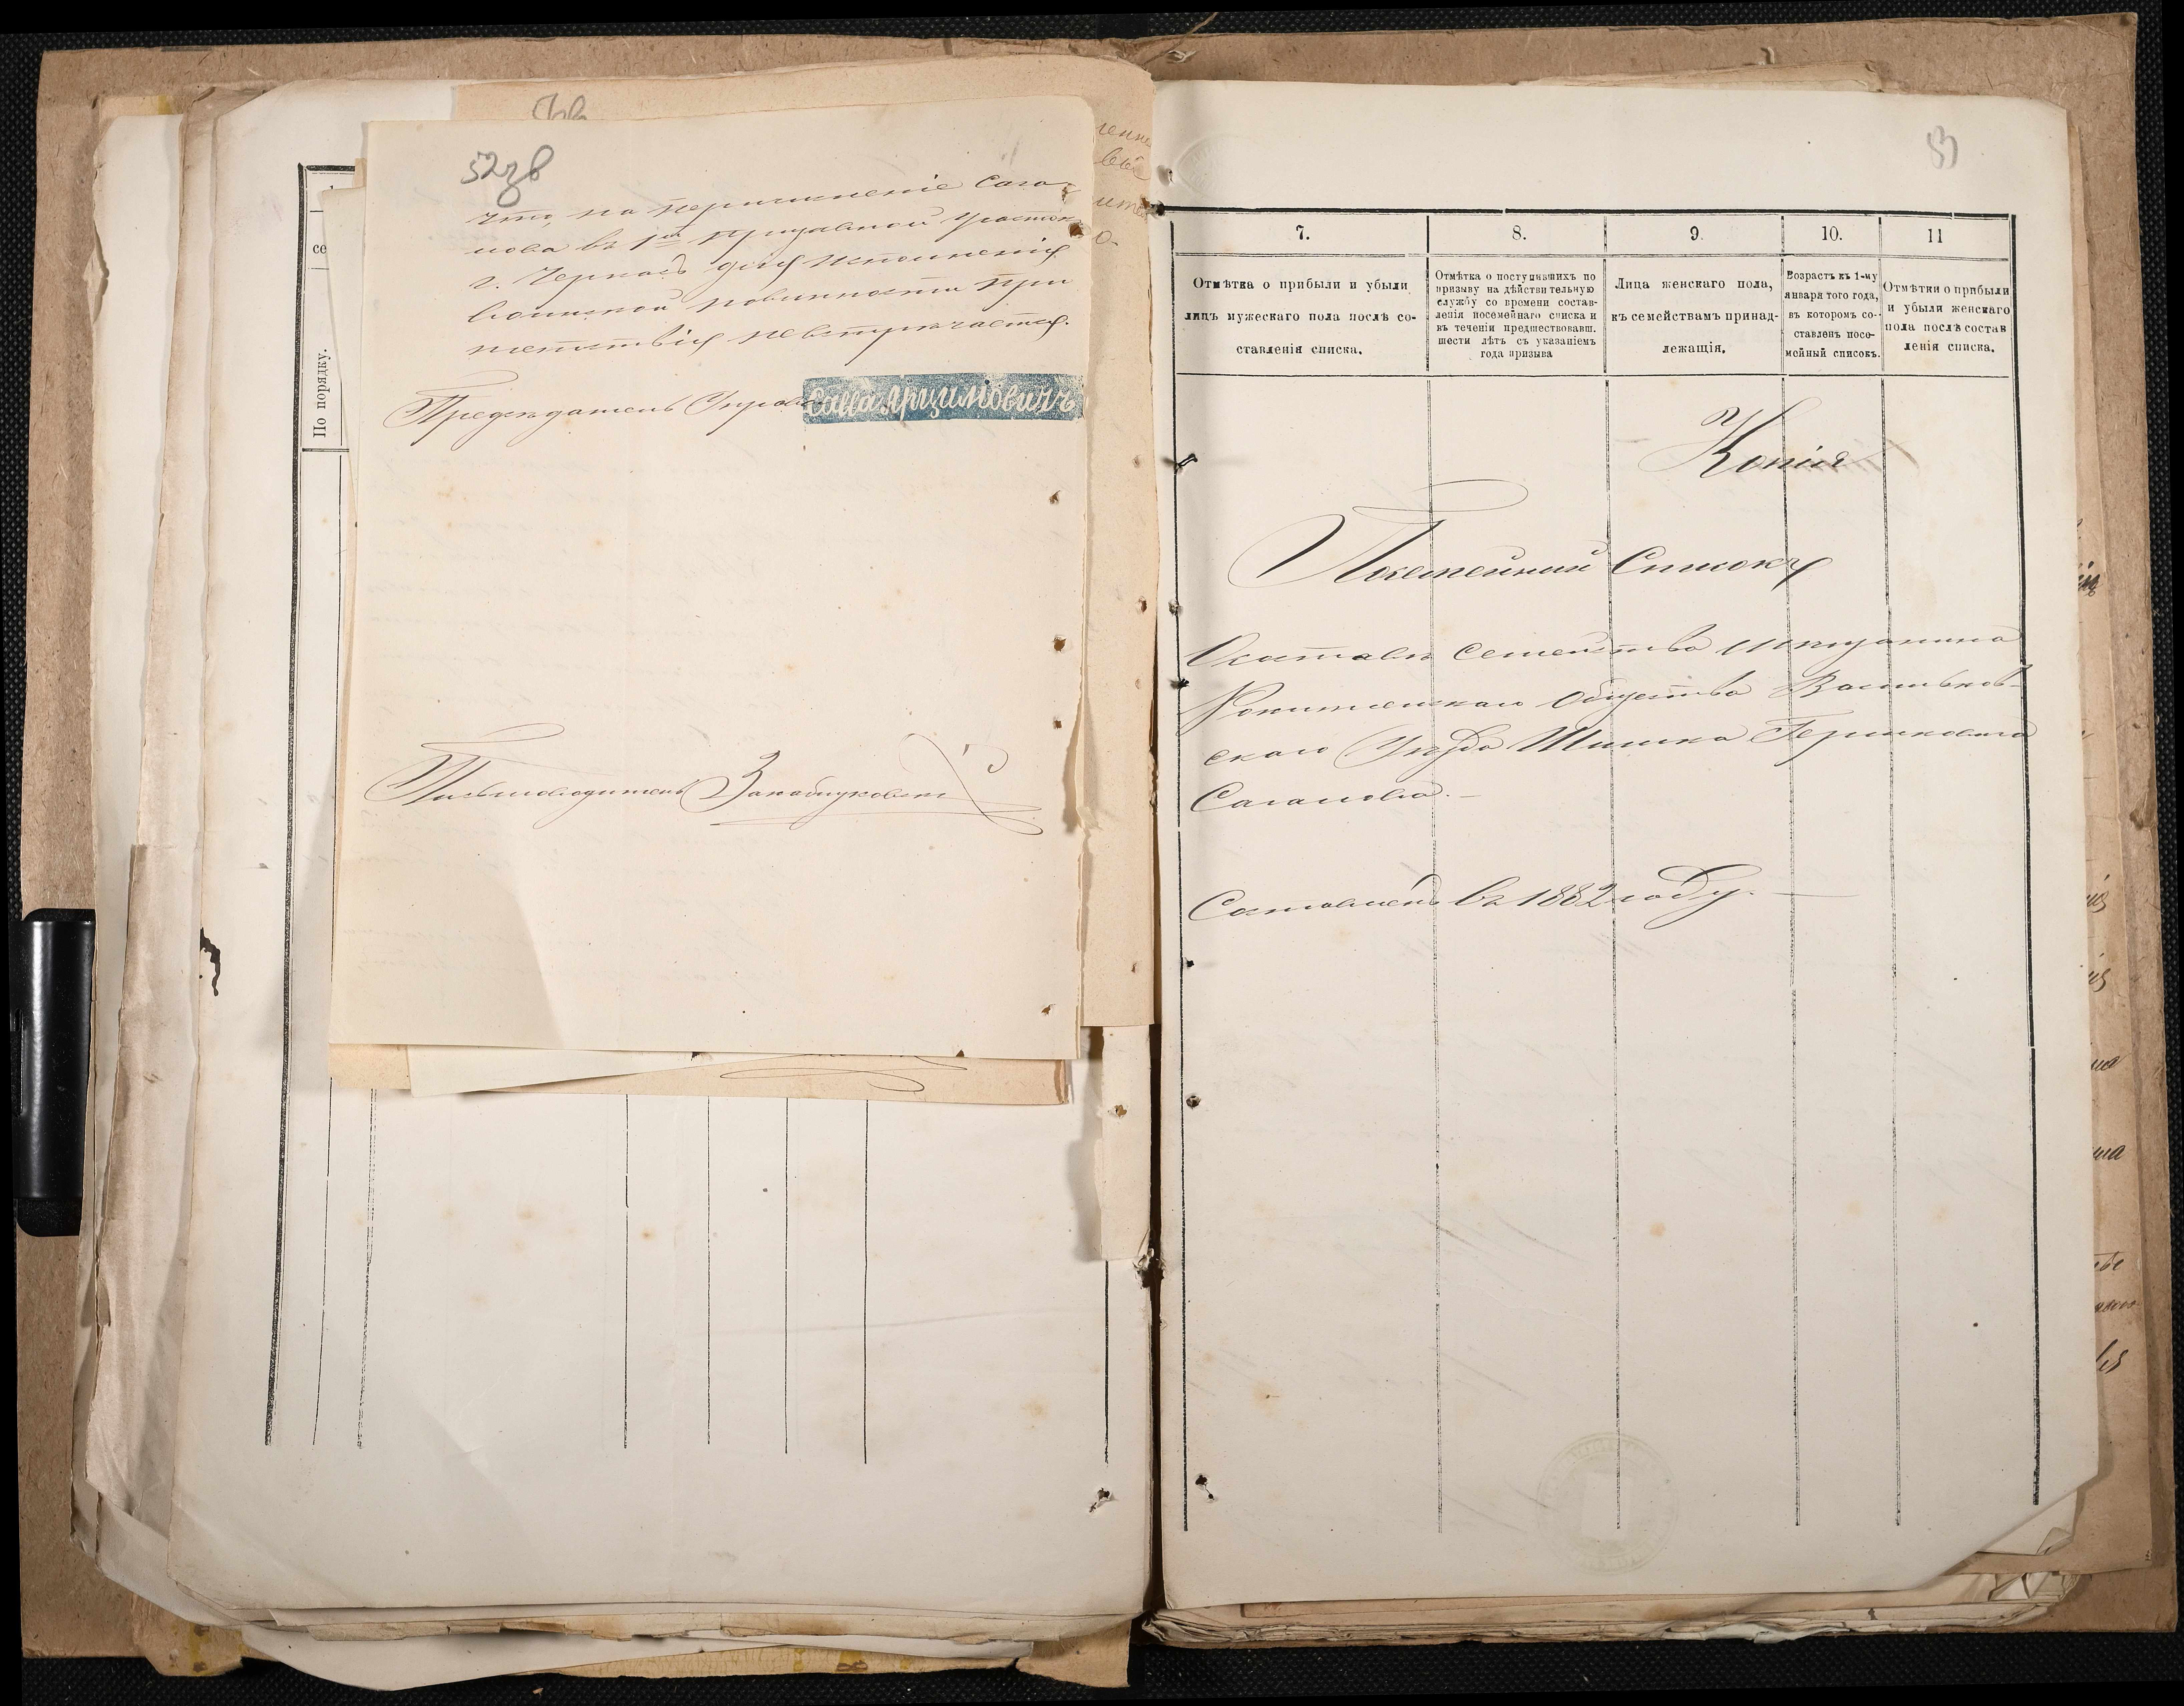 52зв
что, на перечисленіе Сага-
нова въ 1й призывной участокъ
г. Черкасъ для исполненія
воинской повинности пре
пятствія не встречается.
Председатель Управы
Савва Ярцимовичъ
Письмоводитель
се
По порядку.
53
7.
8.
9.
10.
11
Отмѣтка о прибыли и убыли
лицъ мужескаго пола послѣ со-
ставленія списка.
Отмѣтка о поступившихъ по
призыву на дѣйствительную
службу со времени состав-
ленія посемейнаго списка и
въ теченіи предшествовавш.
шести лѣтъ съ указаніемъ
года призыва
Лица женскаго пола,
къ семействамъ принад-
лежащія.
Возрастъ къ 1-му
января того года,
въ которомъ со-
ставленъ посе-
мейный списокъ.
Отмѣтки о прибыли
и убыли женскаго
пола послѣ состав
ленія списка.
Копія
Посемейный Списокъ
О составѣ семейства мѣщанина
Рокитянскаго Общества Васильков-
скаго Уѣзда Шишка Гершковича
Саганова.—
Составленъ въ 1882 году.—